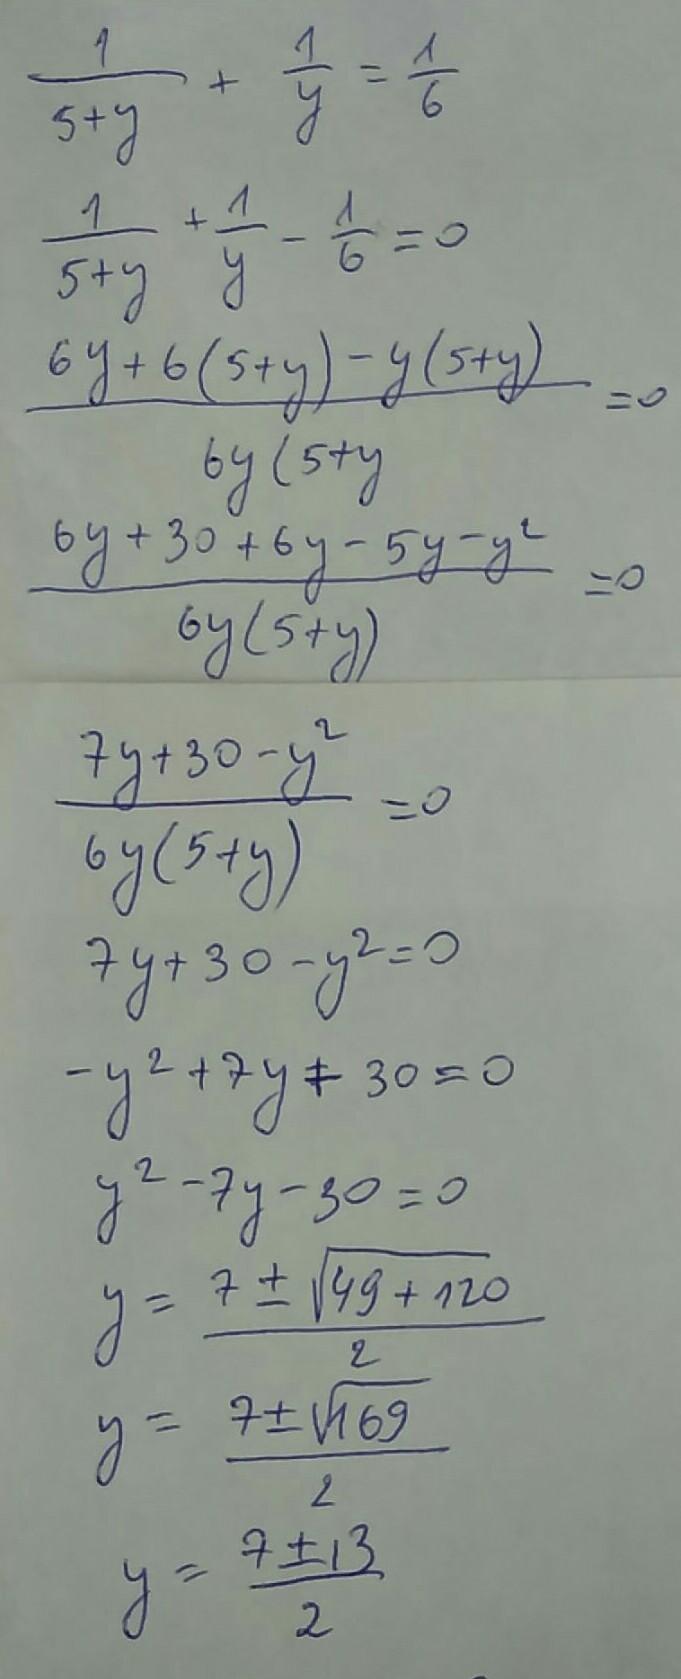 1/(5+y) + 1/y = 1/6
1/(5+y) + 1/y - 1/6 = 0
(6y+6(5+y)-y(5+y))/(6y(5+y) = 0
(6y+30+6y-5y-y²)/(6y(5+y)) = 0
(7y+30-y²)/(6y(5+y)) = 0
7y+30-y²=0
-y²+7y+30=0
y²-7y-30=0
y = (7±√(49+120))/2
y = (7±√169)/2
y = (7±13)/2